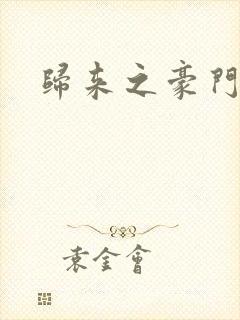 歸来之豪門
袁金會